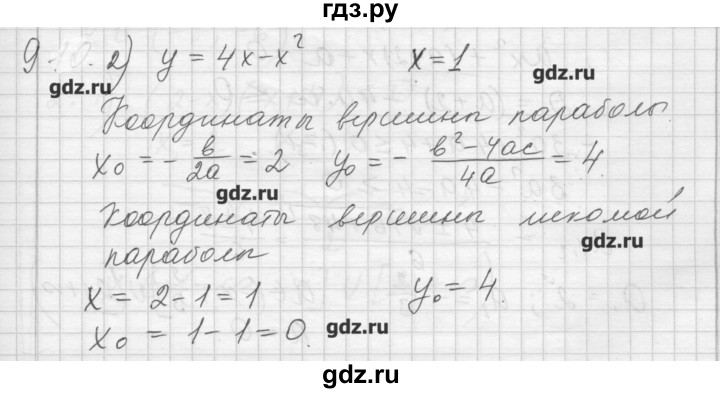 гдз.ру
9.10. 2) y = 4x - x² x = 1
gdz.ru
Координаты вершины параболы.
x₀ = - в/2a = 2 y₀ = - в² - 4ac/4a = 4.
gdz.ru
Координаты вершины искомой
gdz.ru
параболы
x = 2 - 1 = 1 y₀ = 4.
x₀ = 1 - 1 = 0.
gdz.ru
gdz.ru